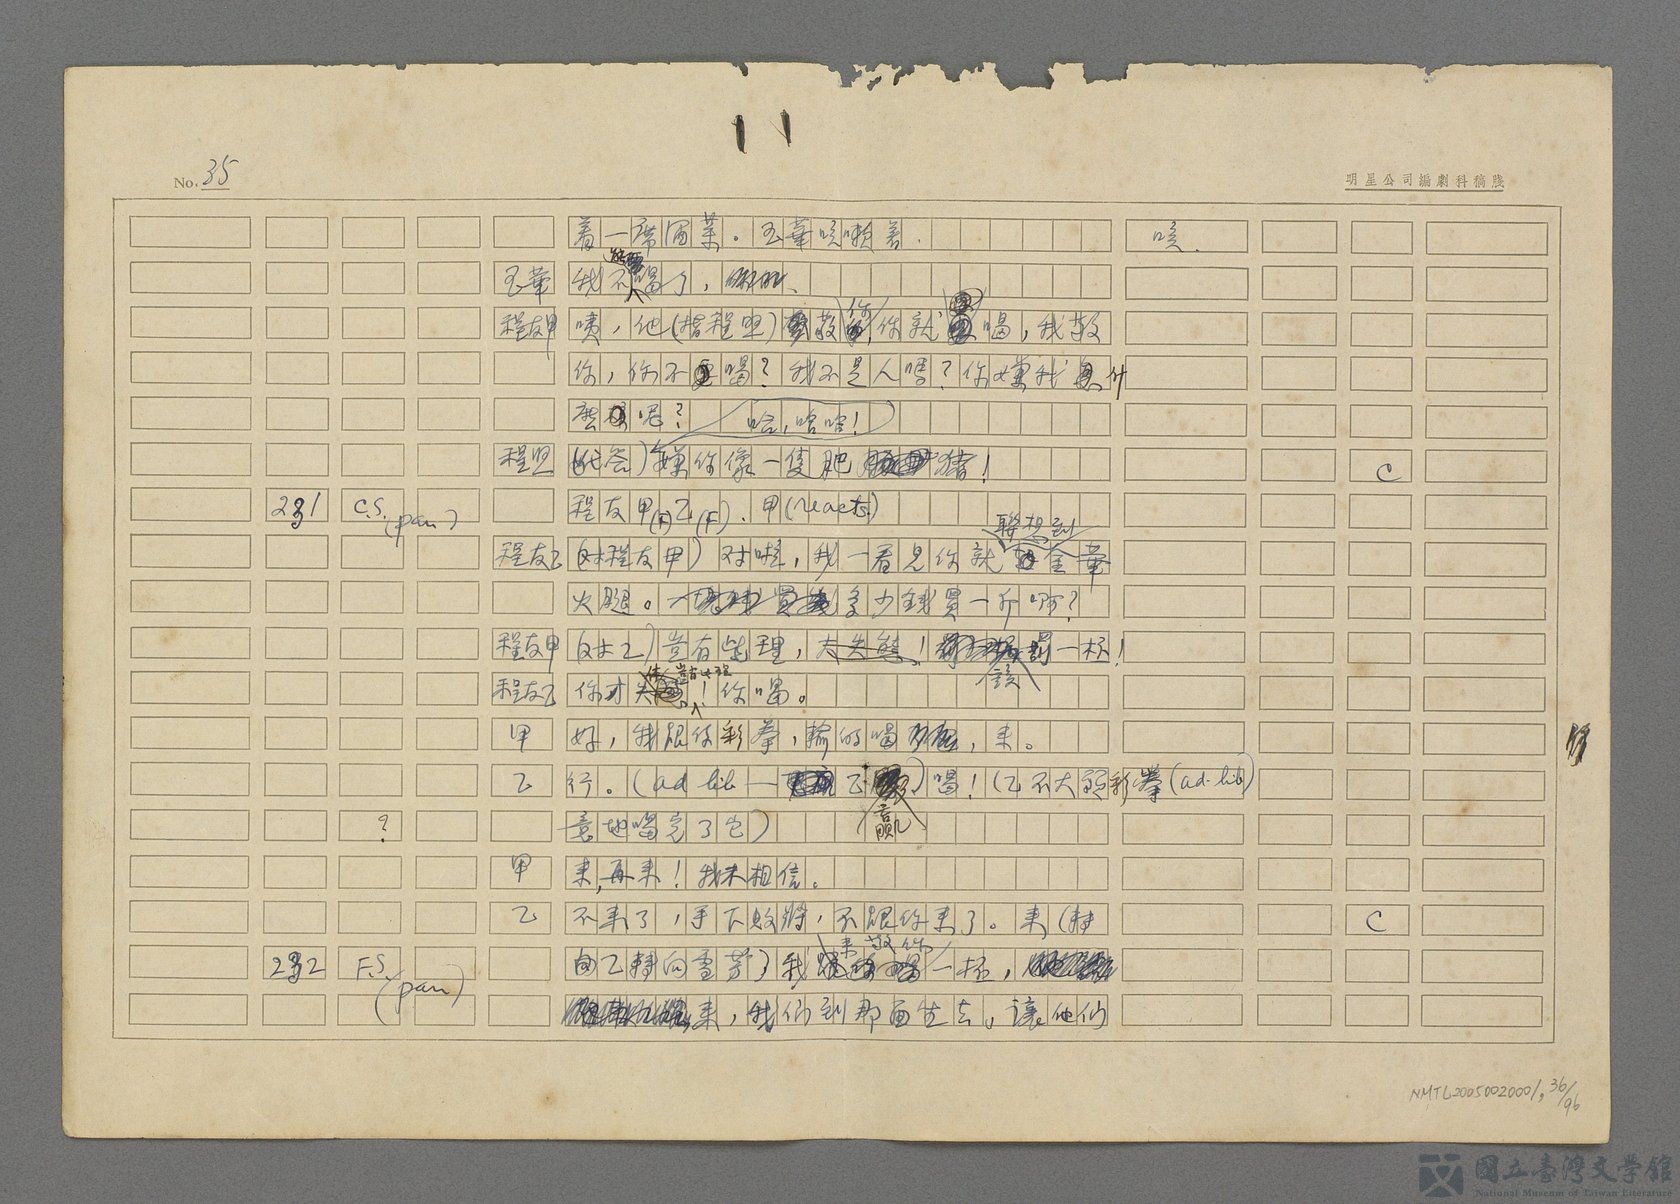 No. 35
明星公司編劇科稿牋
着一席酒菜。玉華咳嗽着. 咳.
玉華 我不能喝了,
程友甲 咦，他(指程明)敬你，你就喝，我敬
你，你不喝？我不是人嗎？你嫌我什
麼呢？哈，哈哈！
程明 (代答)嫌你像一隻肥豬！ C
231 C.S. (pan) 程友甲(F)乙(F). 甲(reacts)
程友乙 (对程友甲)对啦，我一看見你就聯想到金華
火腿。多少錢買一斤啊？
程友甲 (对乙)豈有此理，該罰一杯！
程友乙 你才豈有此理！你喝。
甲 好，我跟你彩拳，輸的喝，来。
乙 行。(ad lib — 乙贏)喝！(乙不大願彩拳(ad-lib)
? 意地喝完了它)
甲 来，再来！我未相信。
乙 不来了，手下敗將，不跟你来了。来( C
232 F.S. (pan) 由乙轉向雪芳)我来敬你一杯，
来，我们到那面坐去，讓他们
NMTL20050020001, 36/96
國立臺灣文學館
National Museum of Taiwan Literature